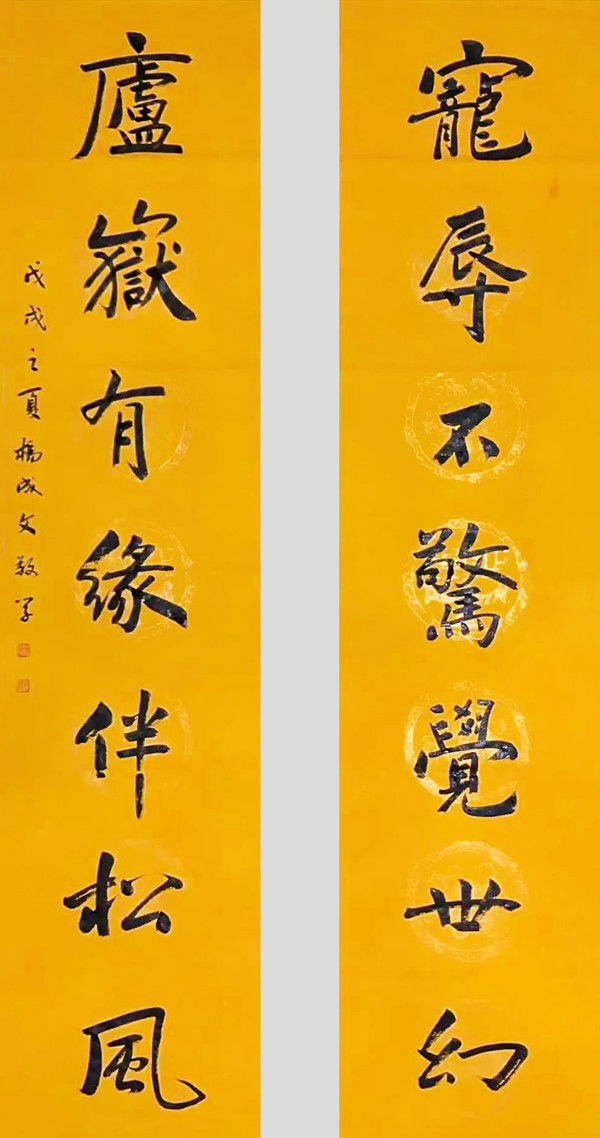 寵辱不驚覺世幻
廬嶽有緣伴松風
戊戌之夏楊成文敬書